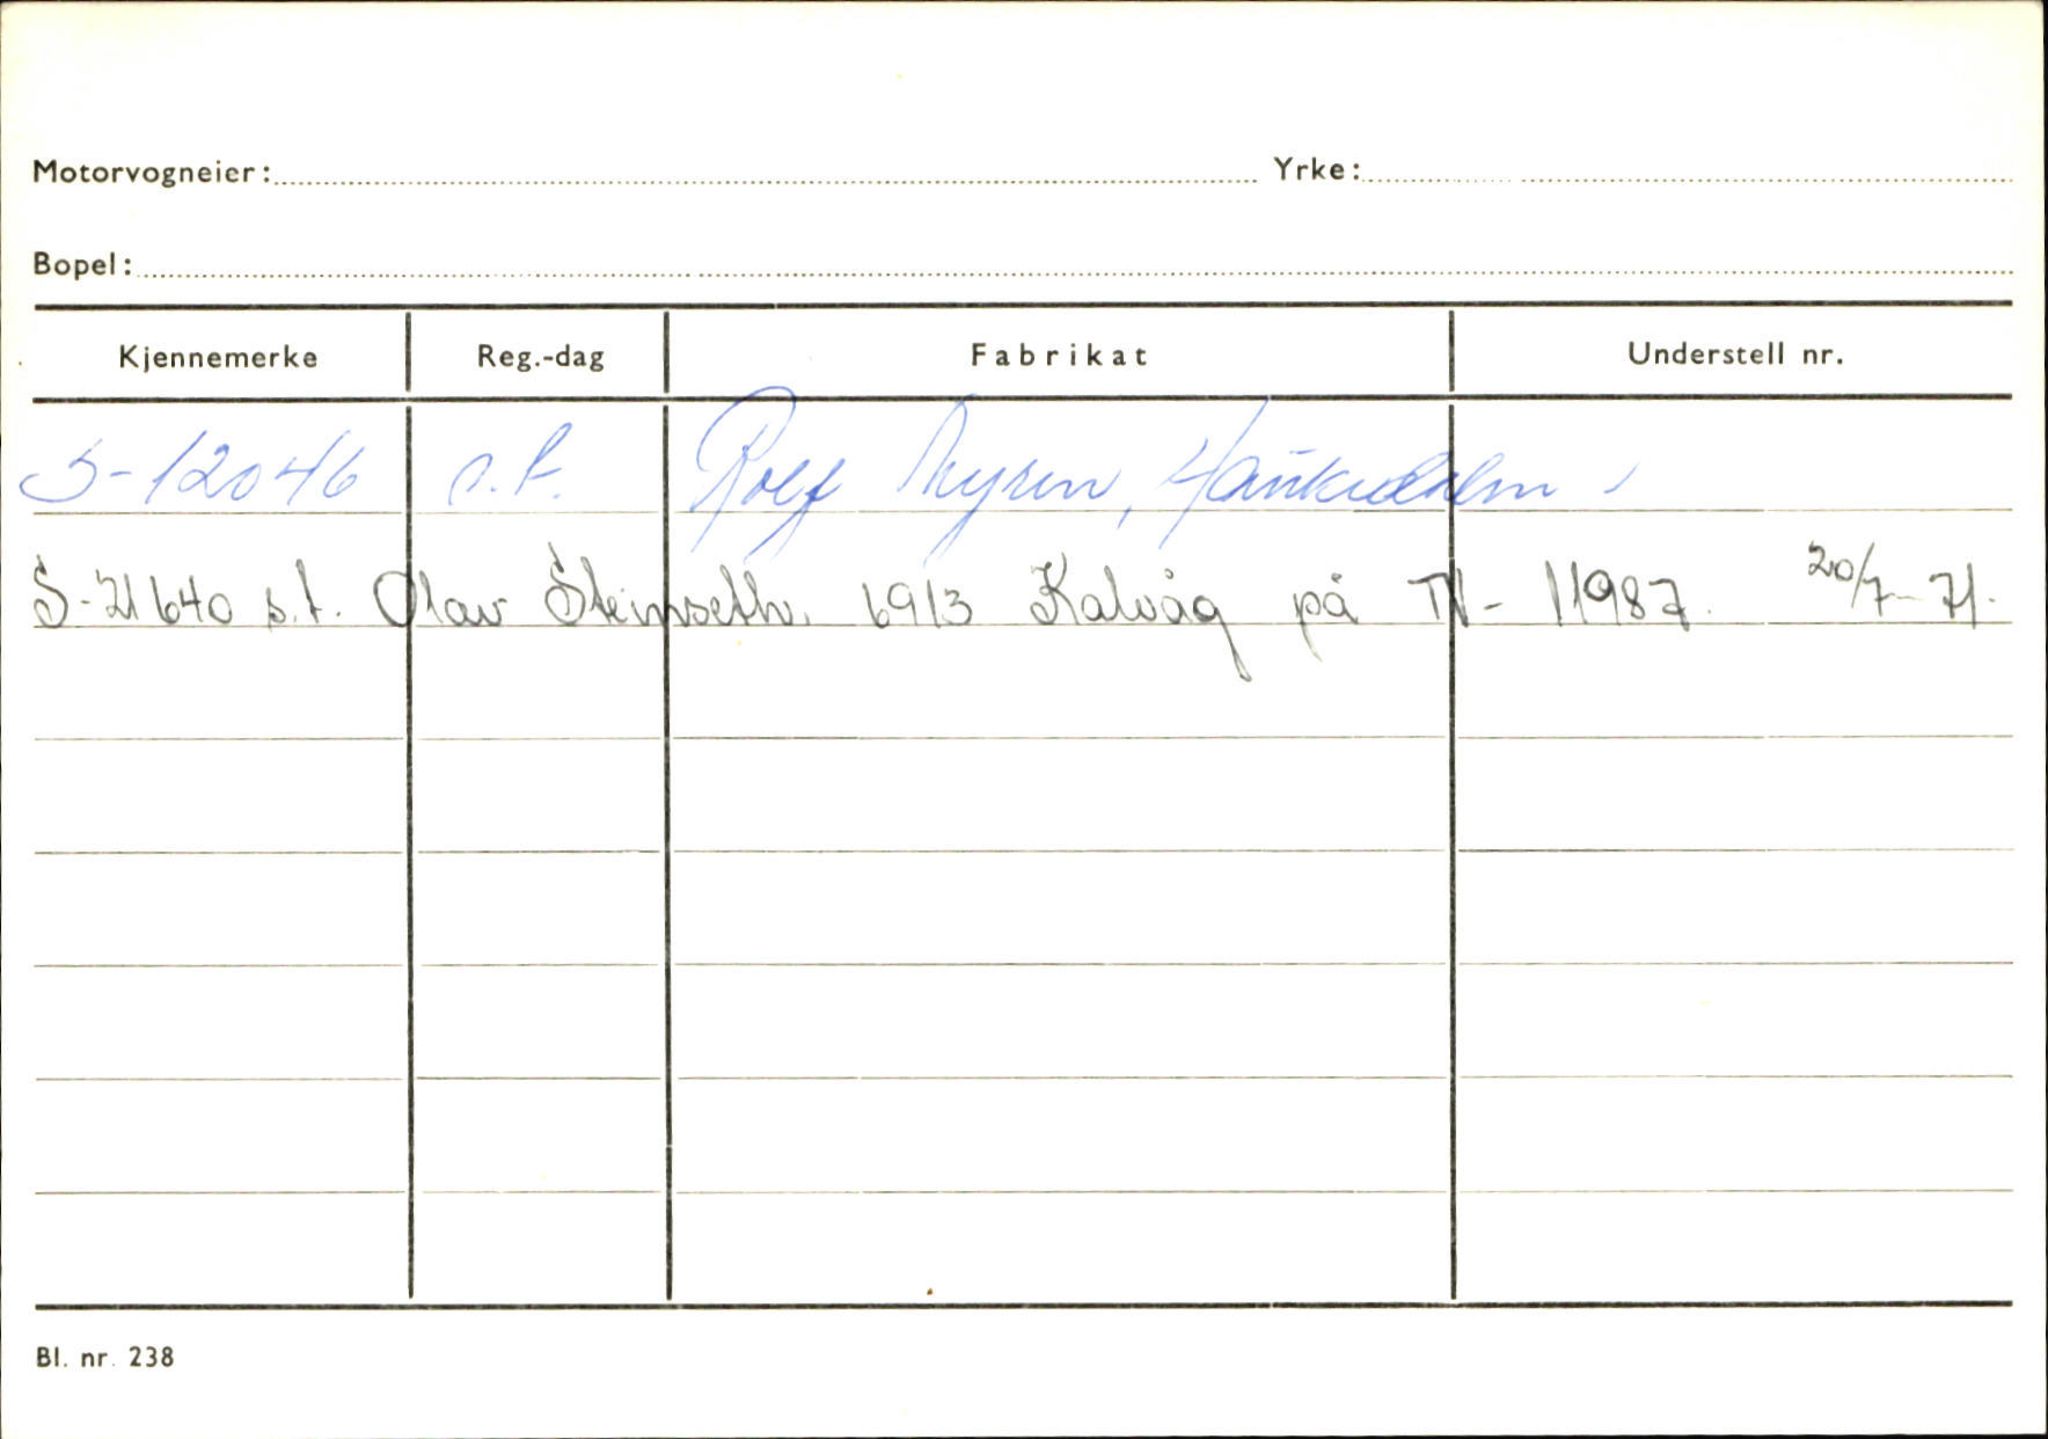 Motorvogneier: Yrke:
Bopel:
Kjennemerke Reg.-dag Fabrikat Understell nr.
S-12046 s.t. Rolf Myren, Haukedalen
S-21640 s.t. Olav Steinseth. 6913 Kalvåg på TV- 11987. 20/7-71.
Bl. nr. 238